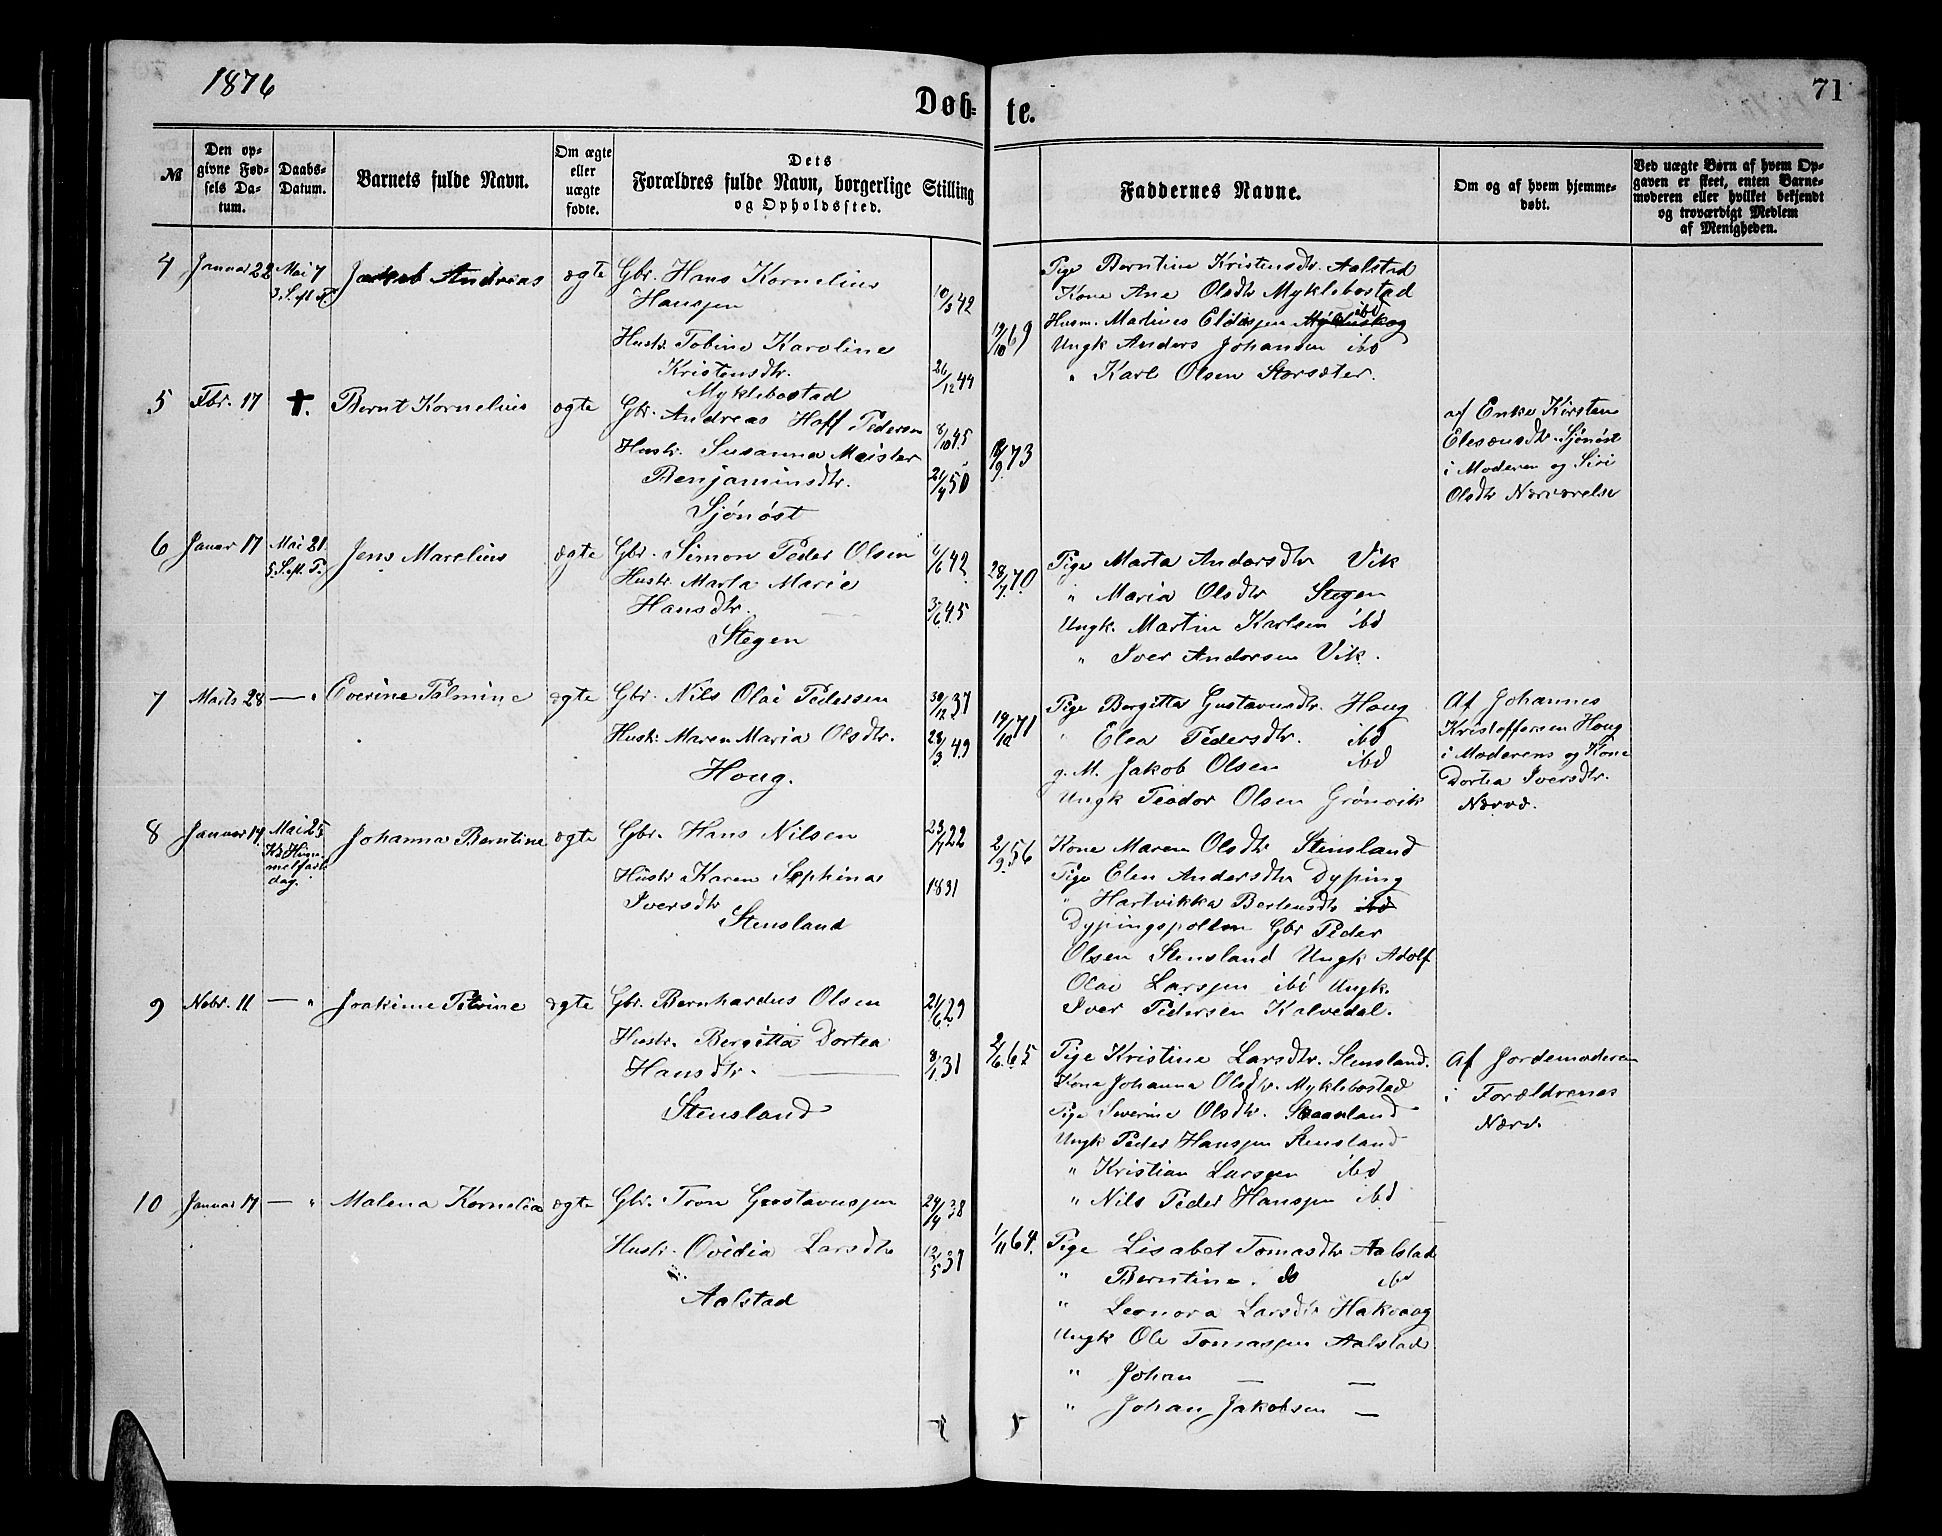 1876
Døb-
te.
71
№
Den op-
givne Fød-
sels Da-
tum.
Daabs-
Datum.
Barnets fulde Navn.
Om ægte
eller
uægte
fødte.
Dets
Forældres fulde Navn, borgerlige Stilling
og Opholdssted.
Faddernes Navne.
Om og af hvem hjemme-
døbt.
Ved uægte Børn af hvem Op-
gaven er skeet, enten Barne-
moderen eller hvilket bekjendt
og troværdigt Medlem
af Menigheden.
4 Januar 22 Mai 7 Jakob Andreas ægte Gbr. Hans Kornelius
3. S. eft. P.
Hanssen 10/3 42
Hustr. Tobine Karoline
Kristensdtr. 26/12 44
Myklebostad
19/10 69
Pige Berntine Kristensdtr. Aalstad
Kone Ane Olsdtr Myklebostad
Husm. Matines Eliassen ibd
Ungk Anders Johansen ibd
" Karl Olsen Storsæter.
5 Fbr. 17 †. Bernt Kornelius ægte Gbr. Andreas Hoff Pedersen 8/10 45
Hustr. Susanna Meister
Benjaminsdtr. 21/4 50
Sjönöst
73
af Enke Kirsten
Elesæusdtr. Sjönöst
i Moderen og Siri
Olsdtr Nærværelse
6 Januar 17 Mai 21 Jens Marelius ægte Gbr. Simon Peder Olsen 6/6 42
5. S. eft. P.
Hustr. Marta Marie
Hansdtr. 3/6 45
Stegen
28/7 70
Pige Marta Andersdtr Vik
" Maria Olsdtr Stegen
Ungk. Martin Karlsen ibd
" Iver Andersen Vik.
7 Marts 28 — " Everine Palmine ægte Gbr. Nils Olai Pedersen 30/12 37
Hustr. Maren Maria Olsdtr. 28/3 49
Houg.
19/10 71
Pige Bergitta Gustavusdtr. Houg
" Elea Pedersdtr. ibd
g. M. Jakob Olsen ibd
Ungk Teodor Olsen Grönvik
Af Johannes
Kristoffersen Houg
i Moderens og Kone
Dortea Iversdtr.
Nærvæ.
8 Januar 17. Mai 25 Johanna Berntine ægte Gbr. Hans Nilsen 23/7 22
Kr. Him-
melfarts
dag.
Hustr Karen Sephina 1831
Iversdtr
Stensland
2/9 56
Kone Maren Olsdtr Stensland
Pige Elen Andersdtr Dyping
" Hartvikka Bertensdtr ibd
Dypingspollen Gbr Peder
Olsen Stensland Ungk Adolf
Olai Larssen ibd Ungk.
Iver Pedersen Kalvedal.
9 Nobr. 11 — " Joakime Petrine ægte Gbr. Bernhardus Olsen 21/6 29
Hustr. Bergitta Dortea
Hansdtr. 8/1 31
Stensland
2/6 65
Pige Kristine Larsdtr. Stensland.
Kone Johanna Olsdtr. Myklebostad
Pige Severine Olsdtr. Skaanland
Ungk Peder Hanssen Stensland
" Kristian Larssen ibd
" Nils Peder Hanssen ibd
Af Jordemoderen
i Forældrenes
Nærv.
10 Januar 17 — " Malena Kornelia ægte Gbr. Tron Gustavussen 24/4 38
Hustr. Ovidia Larsdtr 12/5 37
Aalstad
1/11 64.
Pige Lisabet Tomasdtr Aalstad
" Berntine. do ibd
" Leonora Larsdtr Hakvaag
Ungk Ole Tomassen Aalstad
" Johan — —
" Johan Jakobsen —